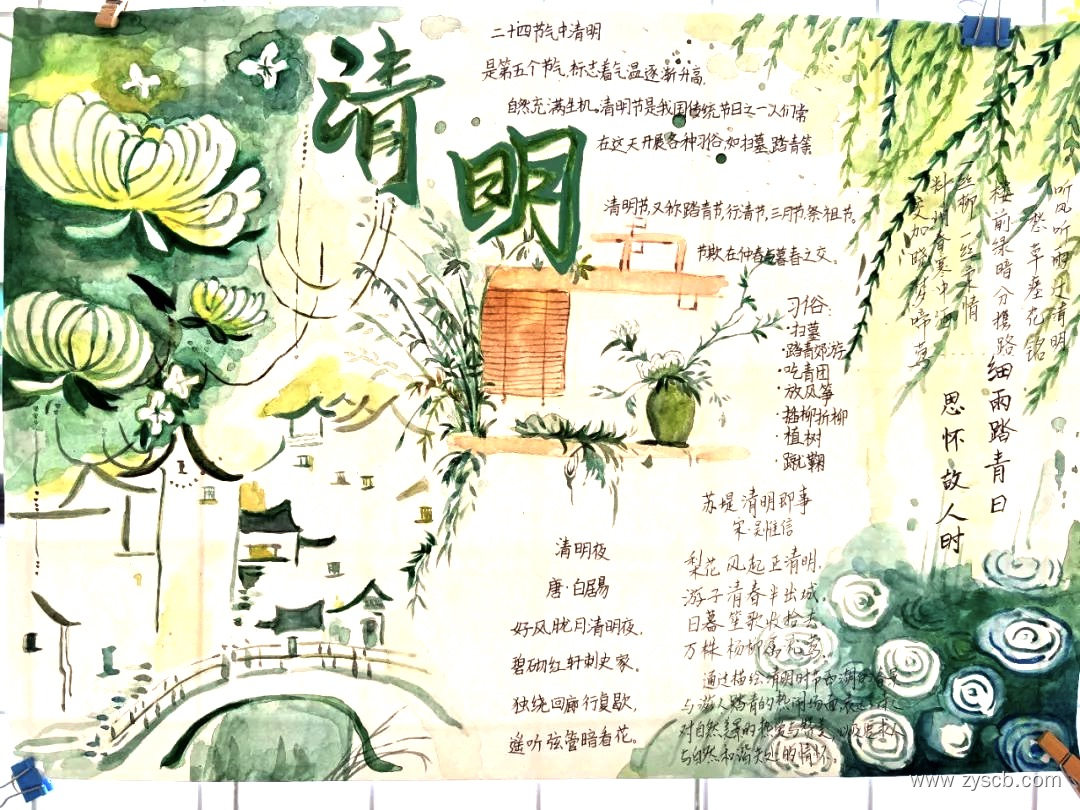 清明
二十四节气中清明
是第五个节气,标志着气温逐渐升高,
自然充满生机。清明节是我国传统节日之一人们常
在这天开展各种习俗,如扫墓,踏青等
清明节,又称踏青节,行清节,三月节,祭祖节。
节欺在仲春与暮春之交。
习俗:
·扫墓
·踏青郊游
·吃青团
·放风筝
·插柳折柳
·植树
·蹴鞠
听风听雨过清明
愁草瘗花铭
楼前绿暗分携路
丝柳一丝柔情
料峭春寒中酒
交加晓梦啼莺
细雨踏青日
思怀故人时
清明夜
唐·白居易
好风胧月清明夜,
碧砌红轩刺史家。
独绕回廊行复歇,
遥听弦管暗看花。
苏堤清明即事
宋·吴惟信
梨花风起正清明,
游子
清春半出城。
日暮笙歌收拾去
万株杨柳属
通过描绘清明时节西湖的
与游人踏青的热闹场面
对自然美景的热爱与赞美,
与自然和谐
的情怀。
www.zyscb.com